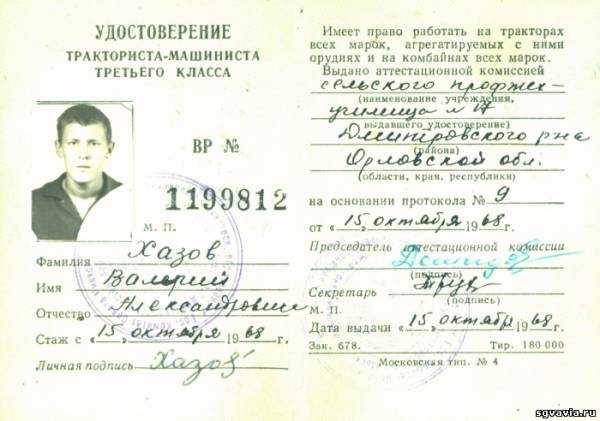 УДОСТОВЕРЕНИЕ
ТРАКТОРИСТА-МАШИНИСТА
ТРЕТЬЕГО КЛАССА
ВР №
1199812
М. П.
Фамилия Хазов
Имя Валерий
Отчество Александрович
Стаж с «15 октября 1968 г.
Личная подпись Хазов
Имеет право работать на тракторах
всех марок, агрегатируемых с ними
орудиях и на комбайнах всех марок.
Выдано аттестационной комиссией
сельского профтех-
(наименование учреждения,
училища № 17
выдавшего удостоверение)
Дмитровского р-на
(района)
Орловской обл.
(области, края, республики)
на основании протокола № 9
от «15 октября 1968 г.
Председатель аттестационной комиссии
(подпись)
Секретарь
(подпись)
М. П.
Дата выдачи «15» октября 1968 г.
Зак. 678. Тир. 180 000
Московская тип. № 4
sgvavia.ru